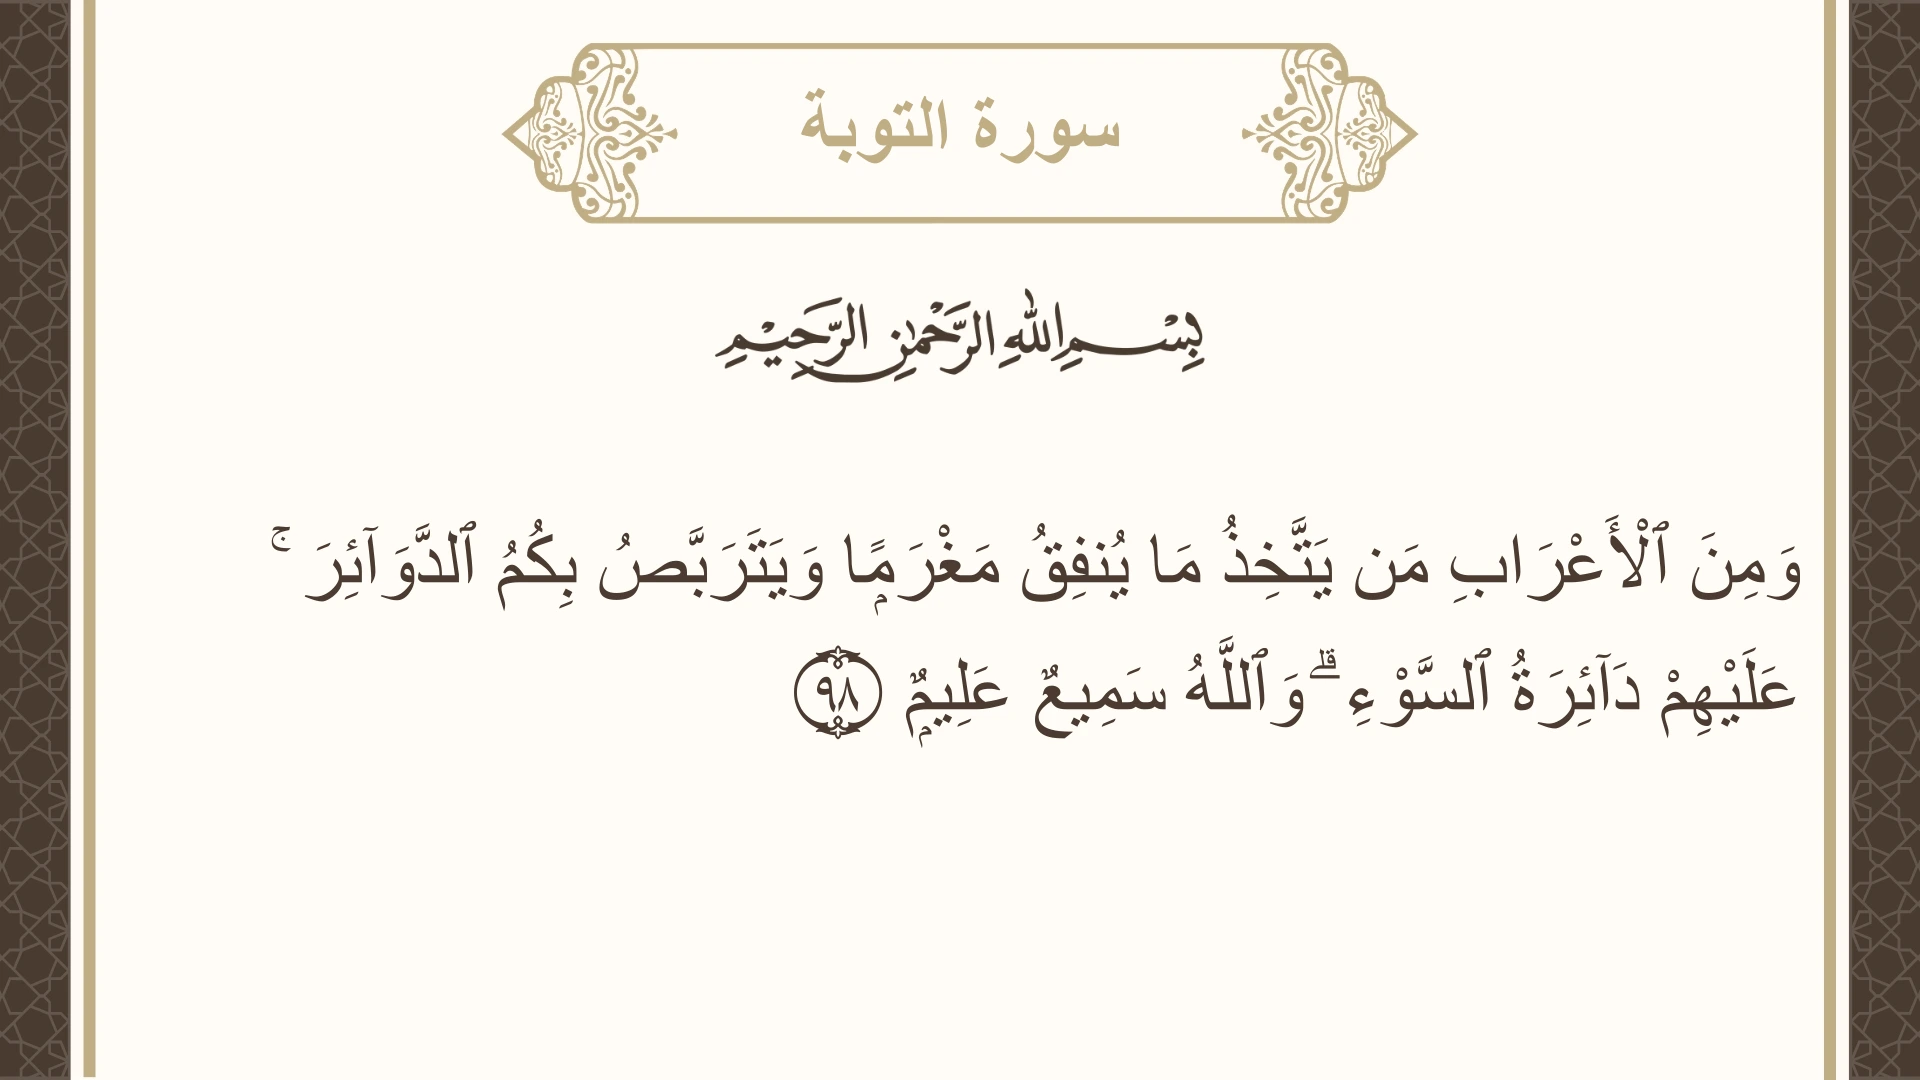 سورة التوبة
بِسْمِ اللهِ الرَّحْمٰنِ الرَّحِيْمِ
وَمِنَ ٱلْأَعْرَابِ مَن يَتَّخِذُ مَا يُنفِقُ مَغْرَمًۭا وَيَتَرَبَّصُ بِكُمُ ٱلدَّوَآئِرَ ۚ
عَلَيْهِمْ دَآئِرَةُ ٱلسَّوْءِ ۗ وَٱللَّهُ سَمِيعٌ عَلِيمٌۭ ٩٨